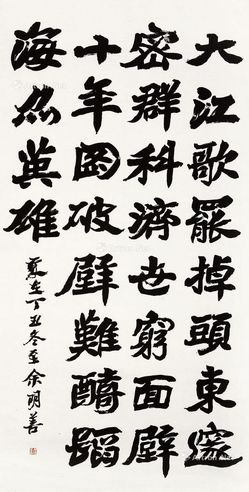 大江歌罷掉頭東邃
密群科濟世窮面壁
十年圖破壁難醻蹈
海亦英雄
歲在丁丑冬至余明善